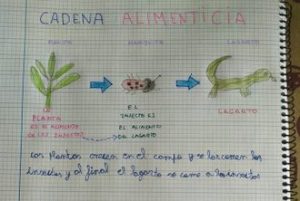 CADENA ALIMENTICIA
PLANTA
LAGARTO
LA
PLANTA
ES EL ALIMENTO
DE LOS INSECTOS
EL
INSECTO ES
EL ALIMENTO
DEL LAGARTO
LAGARTO
Las Plantas crecen en el campo y se las comen los
insectos y al final el lagarto se come a los insectos